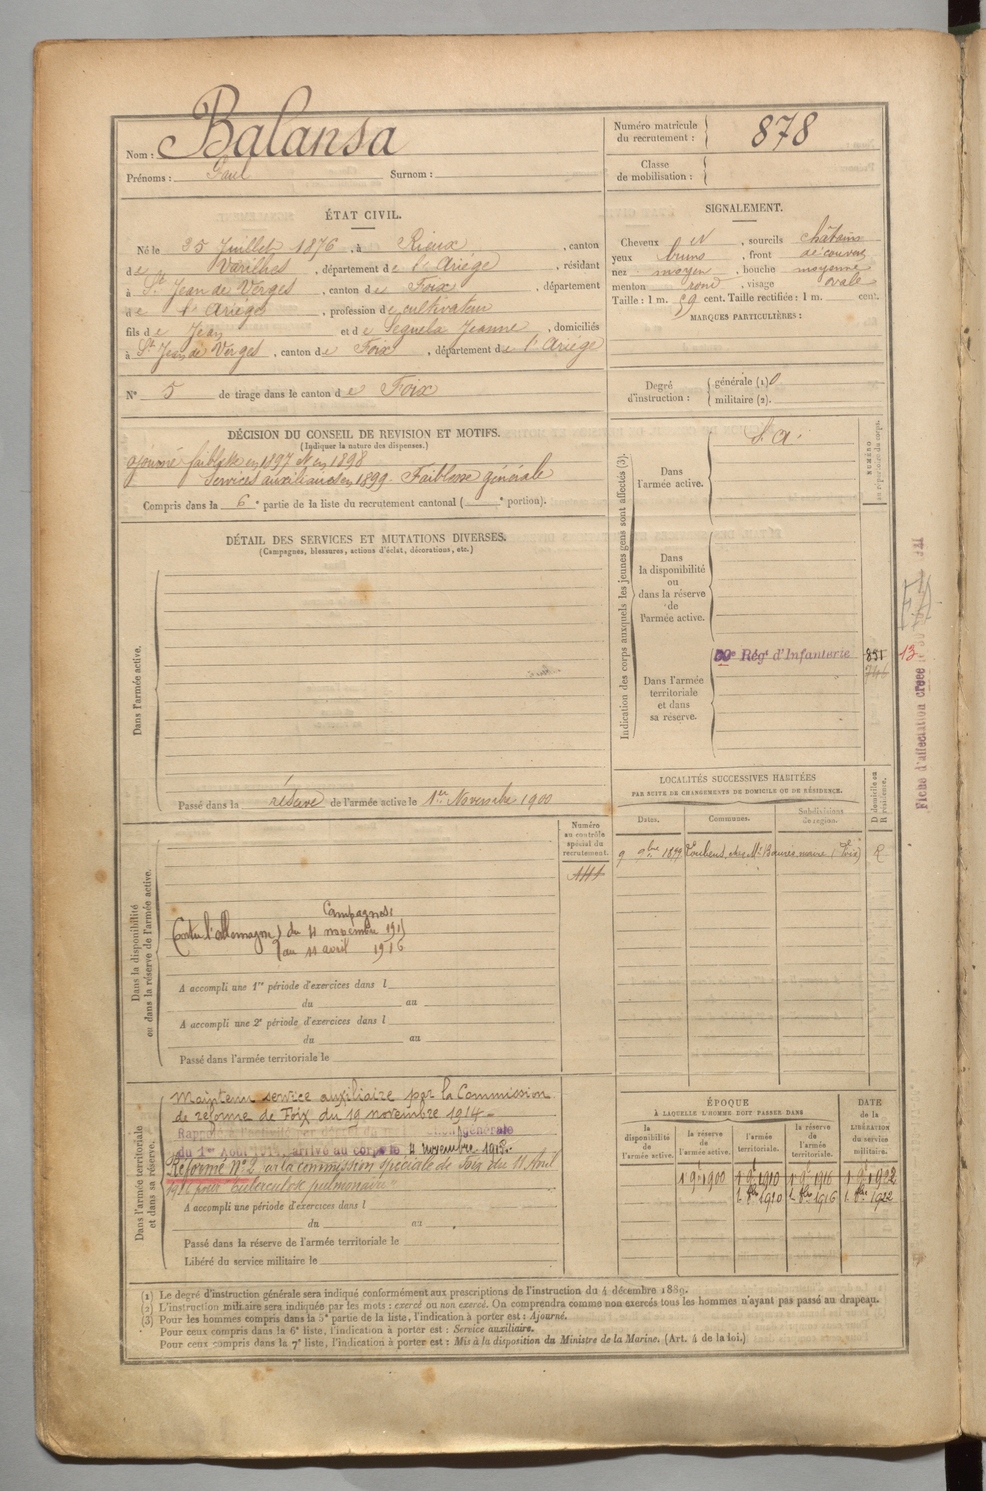 Nom : Balansa
Prénoms : Paul Surnom :
Numéro matricule du recrutement : 878
Classe de mobilisation :
ÉTAT CIVIL.
Né le 25 Juillet 1876, à Rieux, canton
de Varilhes, département de l'Ariège, résidant
à St Jean de Verges, canton de Foix, département
de l'Ariège, profession de cultivateur
fils de Jean et de Seguela Jeanne, domiciliés
à St Jean de Verges, canton de Foix, département de l'Ariège
N° 5 de tirage dans le canton de Foix
SIGNALEMENT.
Cheveux et, sourcils châtains
yeux bruns, front découvert
nez moyen, bouche moyenne
menton rond, visage ovale
Taille : 1 m. 59 cent. Taille rectifiée : 1 m. cent.
MARQUES PARTICULIÈRES :
Degré d'instruction : générale (1) 0
militaire (2).
DÉCISION DU CONSEIL DE REVISION ET MOTIFS.
(Indiquer la nature des dispenses.)
ajourné faiblesse en 1897 et en 1898
Services auxiliaires en 1899. Faiblesse générale
Compris dans la 6e partie de la liste du recrutement cantonal ( e portion).
DÉTAIL DES SERVICES ET MUTATIONS DIVERSES.
(Campagnes, blessures, actions d'éclat, décorations, etc.)
Dans l'armée active.
Passé dans la réserve de l'armée active le 1er Novembre 1900
Indication des corps auxquels les jeunes gens sont affectés (3).
NUMÉRO au répertoire du corps.
Dans l'armée active.
S. A.
Dans la disponibilité ou dans la réserve de l'armée active.
Dans l'armée territoriale et dans sa réserve.
Régt d'Infanterie 851 13
Fiche d'affectation créée
LOCALITÉS SUCCESSIVES HABITÉES
PAR SUITE DE CHANGEMENTS DE DOMICILE OU DE RÉSIDENCE.
Dates. Communes. Subdivisions de région. D domicile ou R résidence.
9 9bre 1899 Loubens, chez Mr Baures, maire (Foix) R
Dans la disponibilité ou dans la réserve de l'armée active.
Numéro au contrôle spécial du recrutement.
Campagnes
Contre l'Allemagne du 11 novembre 1915
au 11 avril 1916
A accompli une 1re période d'exercices dans l
du au
A accompli une 2e période d'exercices dans l
du au
Passé dans l'armée territoriale le
Dans l'armée territoriale et dans sa réserve.
Maintenu service auxiliaire par la Commission
de réforme de Foix du 19 novembre 1914.
Rappelé à l'activité par décret de mobilisation générale
du 1er Août 1914, arrivé au corps le 11 novembre 1915.
Réformé N° 2 par la commission spéciale de Foix du 11 Avril
1916 pour "tuberculose pulmonaire"
A accompli une période d'exercices dans l
du au
Passé dans la réserve de l'armée territoriale le
Libéré du service militaire le
ÉPOQUE
À LAQUELLE L'HOMME DOIT PASSER DANS
DATE de la LIBÉRATION du service militaire.
la disponibilité de l'armée active. la réserve de l'armée active. l'armée territoriale. la réserve de l'armée territoriale.
1 9e 1900 1 9e 1910 1 9e 1916 1 9e 1922
1 8bre 1910 1 8bre 1916 1 8bre 1922
(1) Le degré d'instruction générale sera indiqué conformément aux prescriptions de l'instruction du 4 décembre 1889.
(2) L'instruction militaire sera indiquée par les mots : exercé ou non exercé. On comprendra comme non exercés tous les hommes n'ayant pas passé au drapeau.
(3) Pour les hommes compris dans la 5e partie de la liste, l'indication à porter est : Ajourné.
Pour ceux compris dans la 6e liste, l'indication à porter est : Service auxiliaire.
Pour ceux compris dans la 7e liste, l'indication à porter est : Mis à la disposition du Ministre de la Marine. (Art. 4 de la loi.)